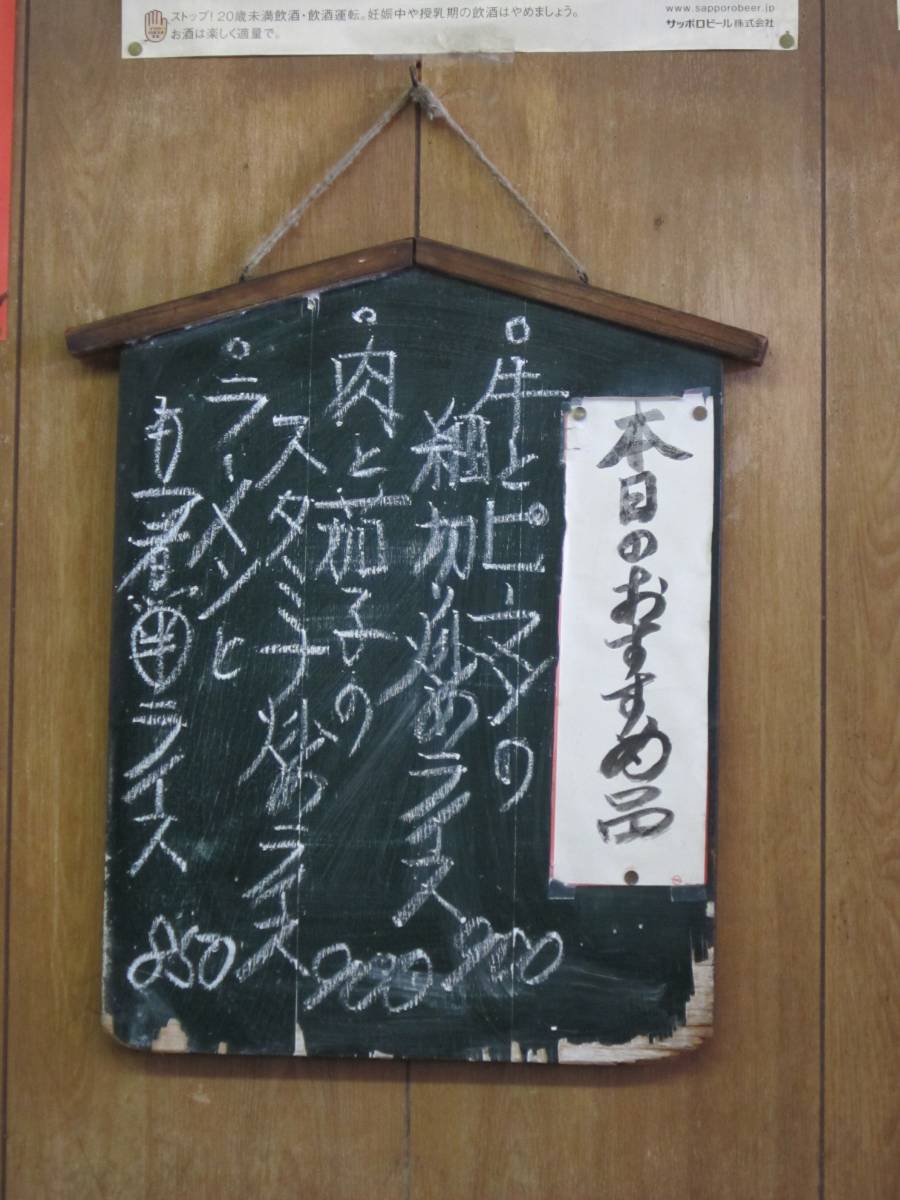 ストップ!20歳未満飲酒・飲酒運転。妊娠中や授乳期の飲酒はやめましょう。
お酒は楽しく適量で。
www.sapporobeer.jp
サッポロビール株式会社
本日のおすすめ品
○牛とピーマンの
細切り炒めライス 900
○肉と茄子の
スタミナ炒めライス 900
○ラーメンと
もつ煮 半ライス 850